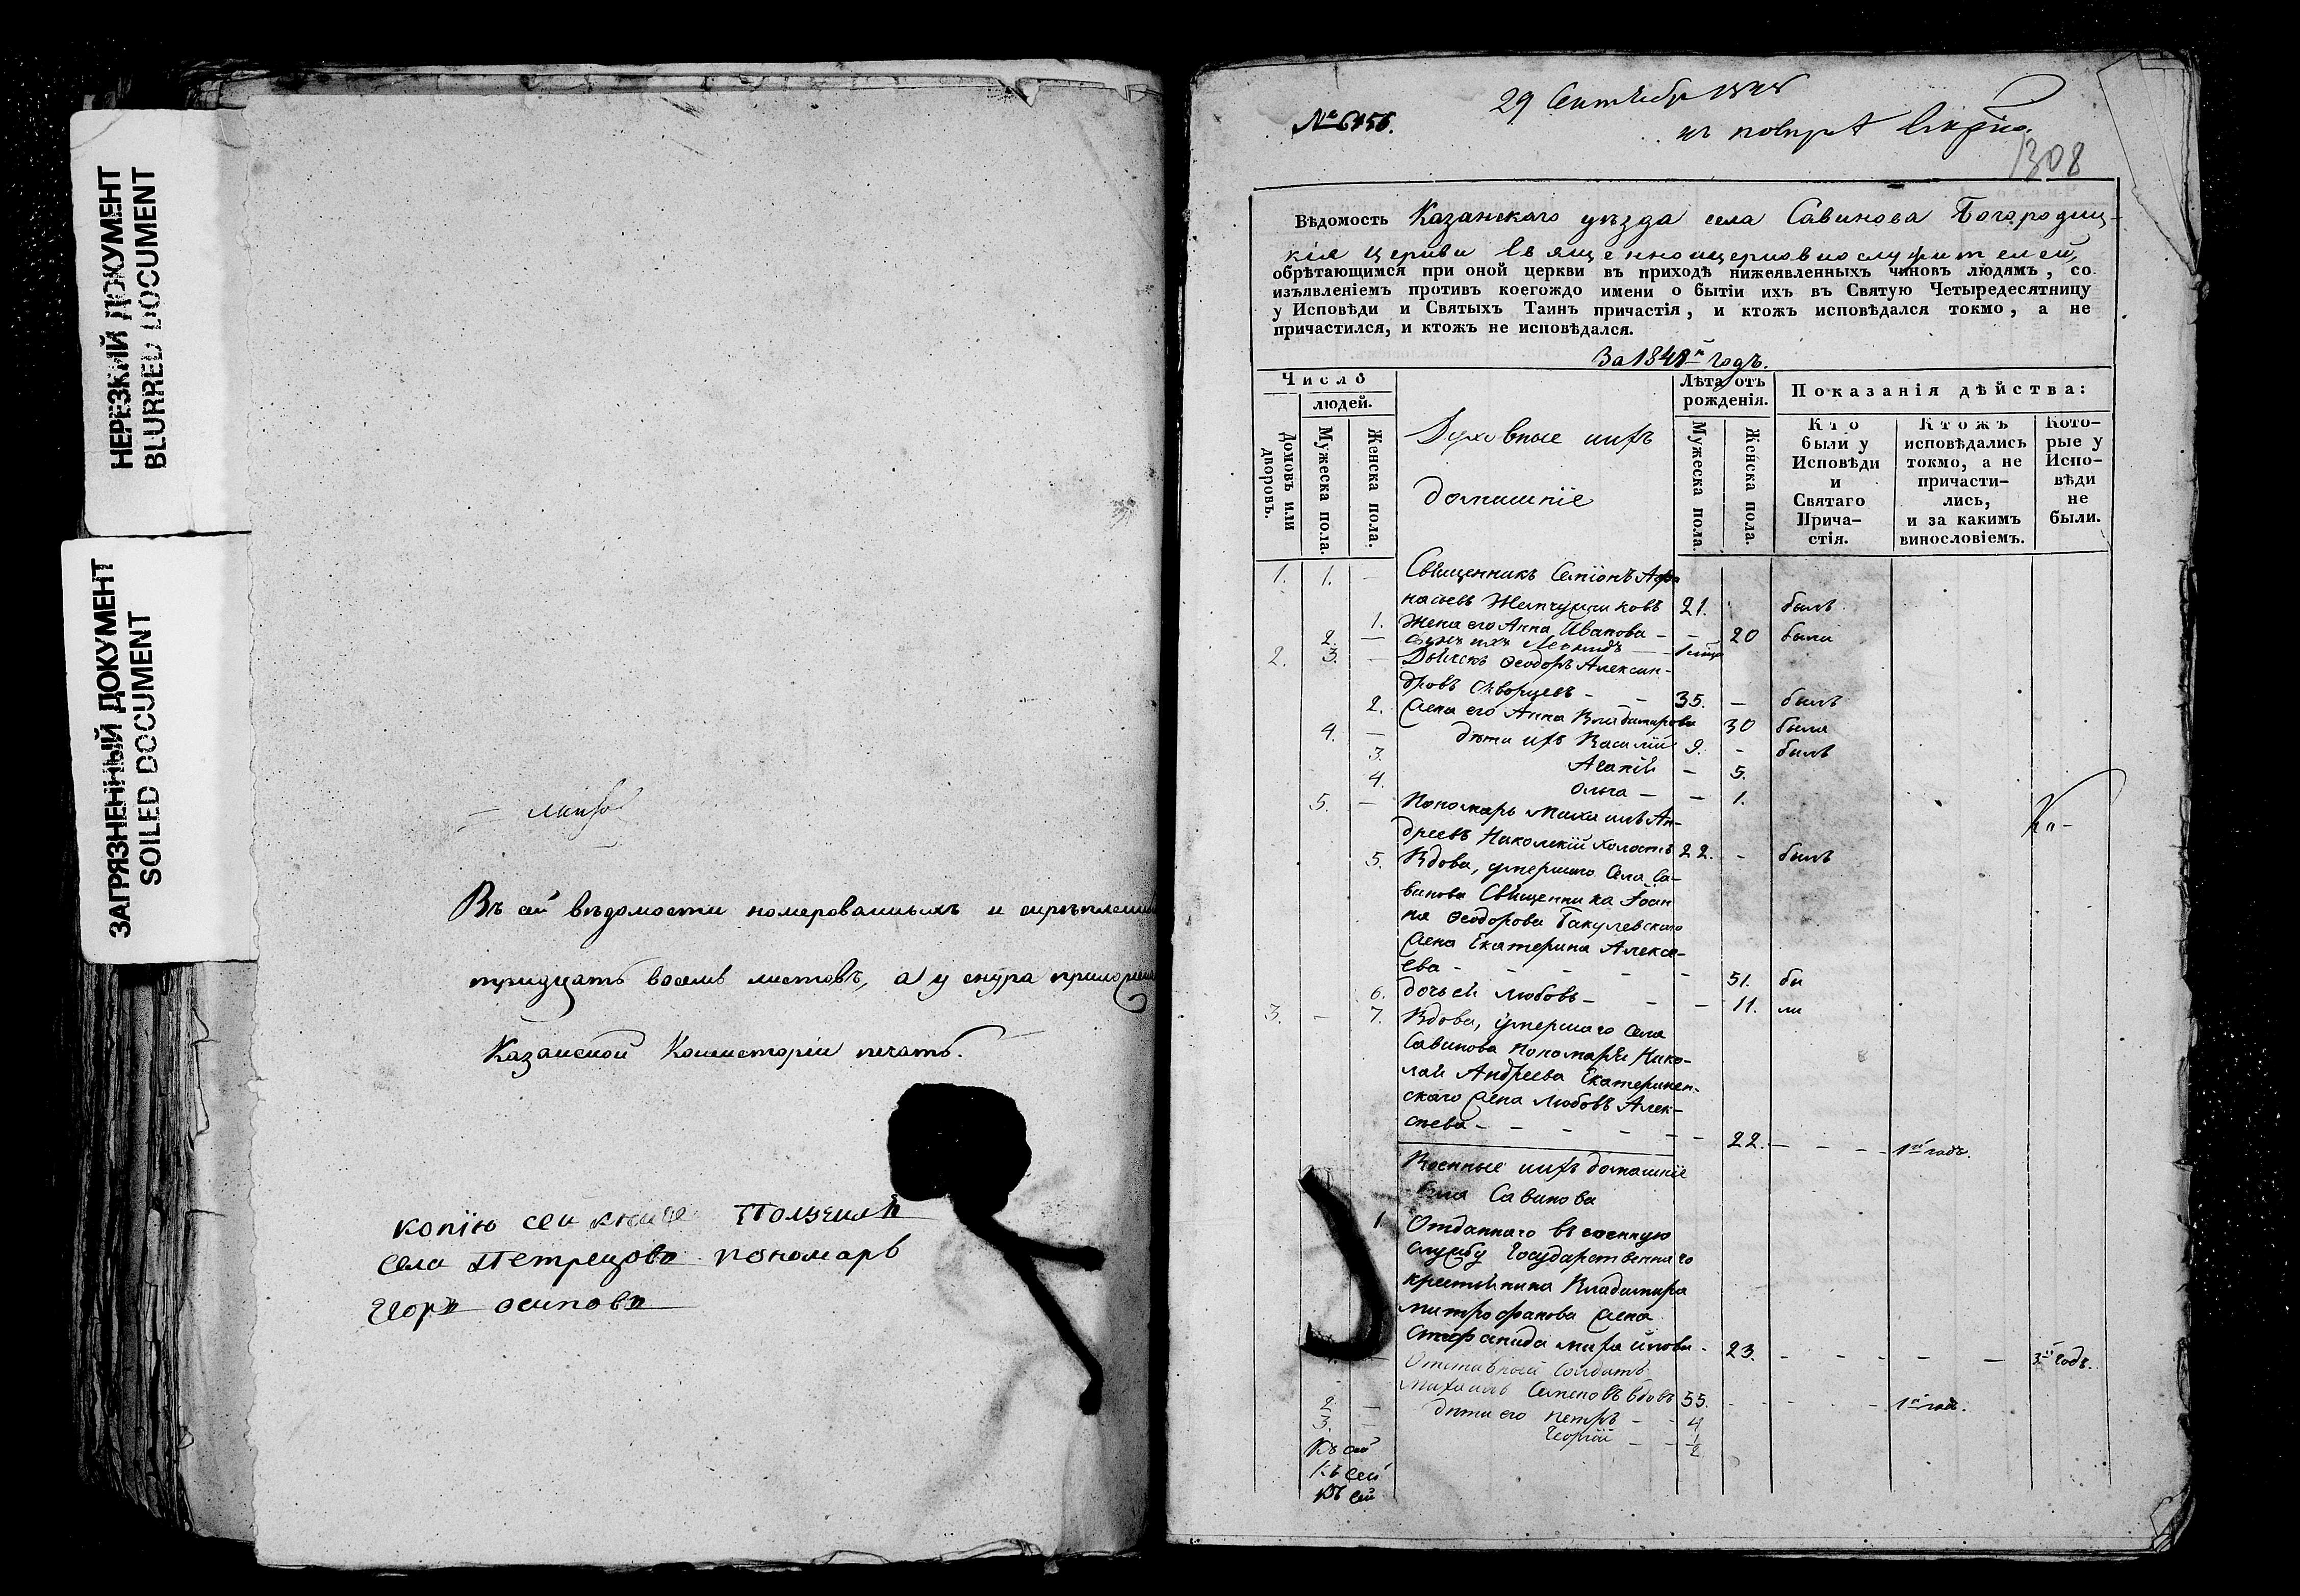 НЕРЕЗКИЙ ДОКУМЕНТ
BLURRED DOCUMENT
ЗАГРЯЗНЕННЫЙ ДОКУМЕНТ
SOILED DOCUMENT
Въ сей вѣдомости номерованныхъ и
тридцать восемь листовъ, а у снура
Казанской Консисторіи печать.
копію сей книге Получилъ
села Петрецова пономарь
Егоръ осиповъ
29 Сентября
№ 6156.
1308
Вѣдомость Казанскаго уѣзда села Савинова Богородиц-
кія церкви священноцерковнослужителей,
обрѣтающимся при оной церкви въ приходѣ нижеявленныхъ чиновъ людямъ, со
изъявленіемъ противъ коегождо имени о бытіи ихъ въ Святую Четыредесятницу
у Исповѣди и Святыхъ Таинъ причастія, и ктожъ исповѣдался токмо, а не
причастился, и ктожъ не исповѣдался.
За 1848й годъ.
Число
людей.
Домовъ или дворовъ.
Мужеска пола.
Женска пола.
Духовные ихъ
домашніе
Лѣта отъ рожденія.
Мужеска пола.
Женска пола.
Показанія дѣйства:
Кто были у Исповѣди и Святаго Прича-
стія.
Ктожъ исповѣдались токмо, а не причасти-
лись, и за какимъ винословіемъ.
Кото-
рые у Испо-
вѣди не были.
1. 1. — Священникъ Симіонъ Афа
насьевъ Жемчужниковъ 21. былъ
1. Жена его Анна Иванова — — 20 была
2. — сынъ ихъ Леонидъ
2. 3. — Дьячокъ Феодоръ Алексан-
дровъ Скворцевъ — — 35. — былъ
2. Жена его Анна Владимирова 30 была
4. — дѣти ихъ Василій 9. — былъ
3. Агапій — 5.
4. Ольга — — 1.
5. — Пономарь Михаилъ Ан-
дреевъ Николскій холостъ 22. — былъ
5. Вдова, умершаго Села Са-
винова Священника Іоан
на Феодорова Бакулевскаго
Жена Екатерина Алексе-
ева — — — — — 51. бы
6. дочь ей Любовь — — — 11. ли
3. — 7. Вдова, умершаго Села
Савинова пономаря Нико-
лая Андреева Екатеринен-
скаго Жена Любовь Алек-
сѣева — — — — — — 22. — — — 1й годъ.
Военные ихъ домашніе
Села Савинова
1 Отданнаго въ военную
службу Государственнаго
крестьянина Владимира
Митрофанова Жена
Стефанида — 23. — — — — — 3й годъ.
Отставной Солдатъ
Михаилъ Семеновъ вдовъ 55. — — — — 1й годъ.
2 — дѣти его Петръ — — 4
3. — Георгій — — 1/2
Къ сей
Къ сей
Къ сей